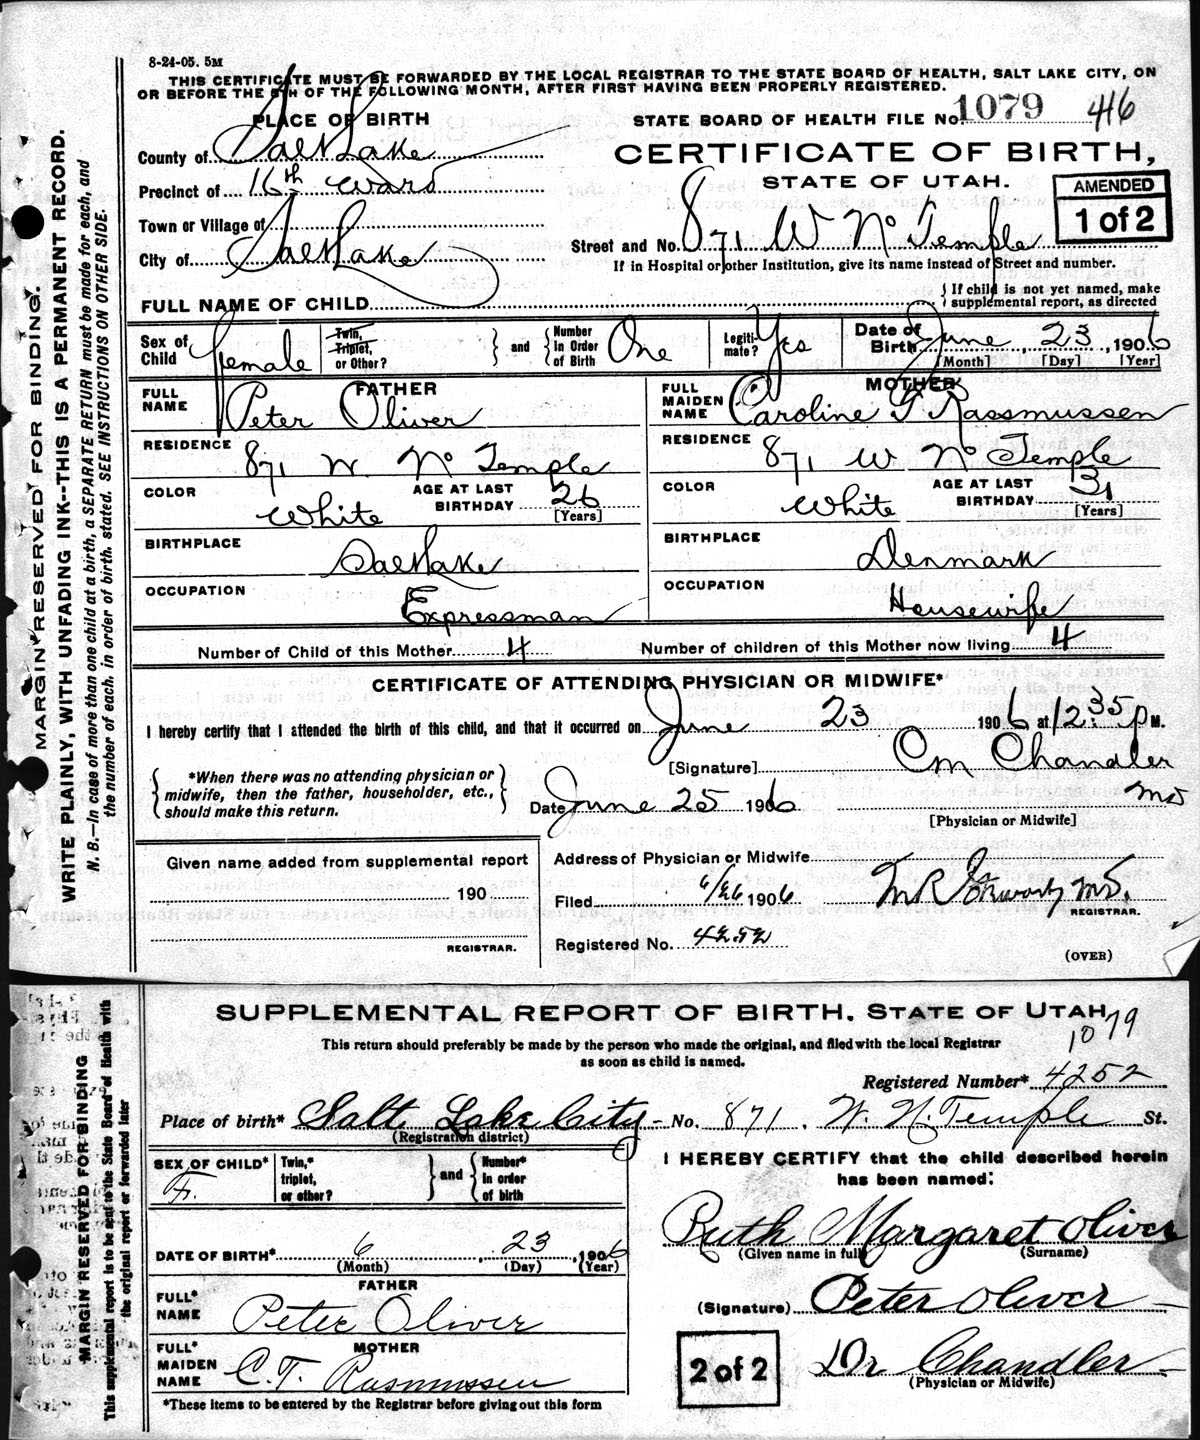 8-24-05. 5M
THIS CERTIFICATE MUST BE FORWARDED BY THE LOCAL REGISTRAR TO THE STATE BOARD OF HEALTH, SALT LAKE CITY, ON
OR BEFORE THE 5TH OF THE FOLLOWING MONTH, AFTER FIRST HAVING BEEN PROPERLY REGISTERED.
PLACE OF BIRTH
STATE BOARD OF HEALTH FILE No. 1079 416
County of Salt Lake
CERTIFICATE OF BIRTH,
Precinct of 16th Ward
STATE OF UTAH.
AMENDED
1 of 2
Town or Village of
Street and No. 871 W No Temple
City of Salt Lake
If in Hospital or other Institution, give its name instead of Street and number.
FULL NAME OF CHILD
{ If child is not yet named, make
supplemental report, as directed
Sex of Child Female
Twin, Triplet, or Other? } and { Number in Order of Birth One
Legitimate? Yes
Date of Birth June, 23, 1906
[Month] [Day] [Year]
FATHER
FULL NAME Peter Oliver
MOTHER
FULL MAIDEN NAME Caroline T Rassmussen
RESIDENCE 871 W. No Temple
RESIDENCE 871 W No Temple
COLOR White AGE AT LAST BIRTHDAY 26 [Years]
COLOR White AGE AT LAST BIRTHDAY 31 [Years]
BIRTHPLACE Salt Lake
BIRTHPLACE Denmark
OCCUPATION Expressman
OCCUPATION Housewife
Number of Child of this Mother 4
Number of children of this Mother now living 4
CERTIFICATE OF ATTENDING PHYSICIAN OR MIDWIFE*
I hereby certify that I attended the birth of this child, and that it occurred on June 23 1906 at 12.35 P M.
{ *When there was no attending physician or
midwife, then the father, householder, etc.,
should make this return. }
[Signature] CM Chandler
Date June 25 1906 MD
[Physician or Midwife]
Given name added from supplemental report
190
REGISTRAR.
Address of Physician or Midwife
Filed 6/26 1906 MD.
REGISTRAR.
Registered No. 4252
(OVER)
MARGIN RESERVED FOR BINDING.
WRITE PLAINLY, WITH UNFADING INK--THIS IS A PERMANENT RECORD.
N. B.—In case of more than one child at a birth, a SEPARATE RETURN must be made for each, and
the number of each, in order of birth, stated. SEE INSTRUCTIONS ON OTHER SIDE.
SUPPLEMENTAL REPORT OF BIRTH, STATE OF UTAH,
1079
This return should preferably be made by the person who made the original, and filed with the local Registrar
as soon as child is named.
Registered Number* 4252
Place of birth* Salt Lake City - No. 871. W. N. Temple St.
(Registration district)
SEX OF CHILD* F.
Twin,* triplet, or other? } and { Number* in order of birth
I HEREBY CERTIFY that the child described herein
has been named:
Ruth Margaret Oliver
(Given name in full) (Surname)
DATE OF BIRTH* 6, 23, 1906
(Month) (Day) (Year)
FATHER
FULL* NAME Peter Oliver
(Signature) Peter Oliver
MOTHER
FULL* MAIDEN NAME C. T. Rasmussen
2 of 2
Dr Chandler
(Physician or Midwife)
*These items to be entered by the Registrar before giving out this form
MARGIN RESERVED FOR BINDING
This supplemental report is to be sent to the State Board of Health with
the original report or forwarded later